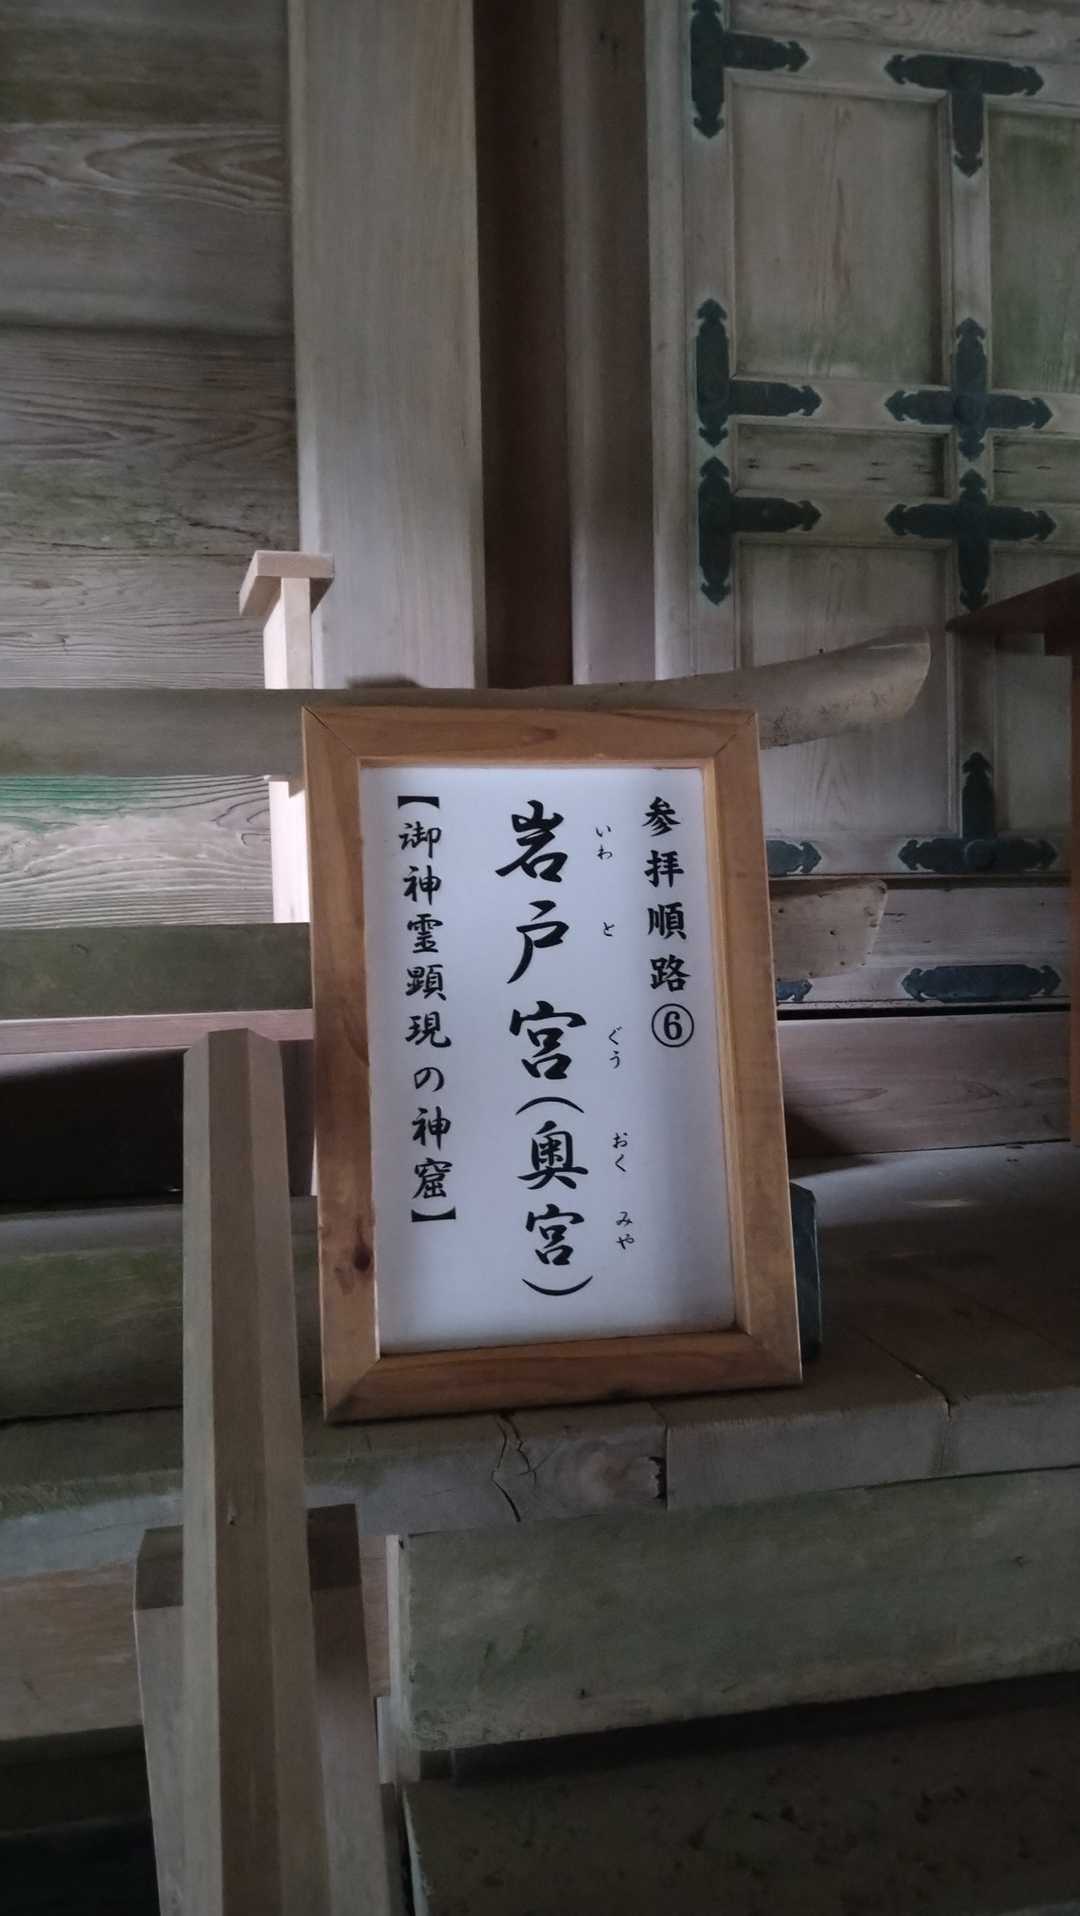 参拝順路⑥
いわとぐう おくみや
岩戸宮(奥宮)
【御神霊顕現の神窟】